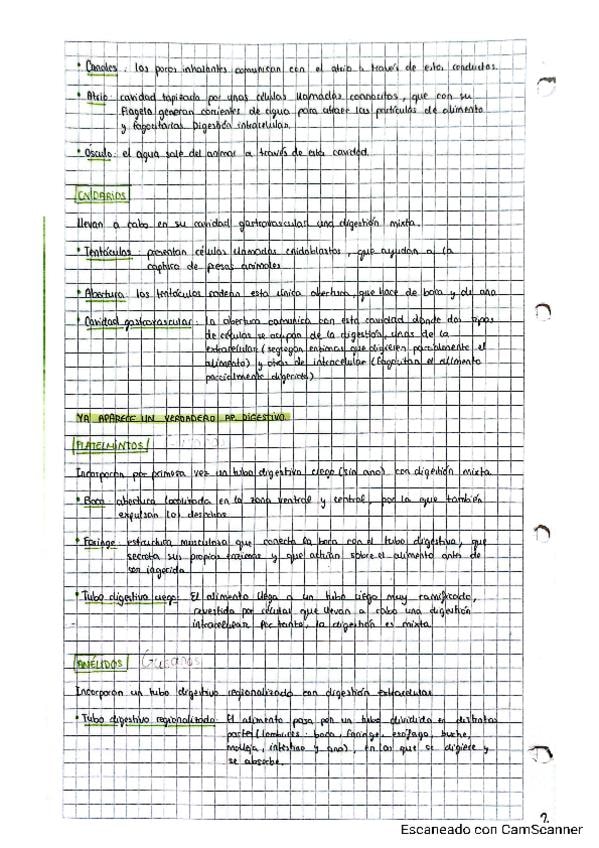 • Canales: los poros inhalantes comunican con el atrio a través de estos conductos.
• Atrio: cavidad tapizada por unas células llamadas coanocitos, que con su
flagelo generan corrientes de agua para atraer las partículas de alimento
y fagocitarlas. Digestión intracelular.
• Osculo: el agua sale del animal a través de esta cavidad.
CNIDARIOS
Llevan a cabo en su cavidad gastrovascular una digestión mixta.
• Tentáculos: presentan células llamadas cnidoblastos, que ayudan a la
captura de presas animales
• Abertura: los tentáculos rodean esta única abertura, que hace de boca y de ano
• Cavidad gastrovascular: la abertura comunica con esta cavidad donde dos tipos
de células se ocupan de la digestión, unas de la
extracelular (segregan enzimas que digieren parcialmente el
alimento) y otras de intracelular (fagocitan el alimento
parcialmente digerido)
YA APARECE UN VERDADERO AP. DIGESTIVO.
PLATELMINTOS
Incorporan por primera vez un tubo digestivo ciego (sin ano) con digestión mixta
• Boca: abertura localizada en la zona ventral y central, por la que también
expulsan los desechos
• Faringe: estructura musculosa que conecta la boca con el tubo digestivo, que
secreta sus propias enzimas y que actúan sobre el alimento antes de
ser ingerido
• Tubo digestivo ciego: El alimento llega a un tubo ciego muy ramificado,
revestido por células que llevan a cabo una digestión
intracelular. Por tanto, la digestión es mixta
ANÉLIDOS Gusanos
Incorporan un tubo digestivo regionalizado con digestión extracelular
• Tubo digestivo regionalizado: El alimento pasa por un tubo dividido en distintas
partes (lombrices: boca, faringe, esófago, buche,
molleja, intestino y ano), en las que se digiere y
se absorbe.
2.
Escaneado con CamScanner